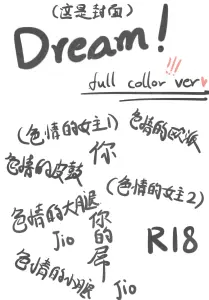 (这是封面)
Dream!
full collor ver
(色情的女主1)
色情的欧派
你
色情的皮鼓
(色情的女主2)
色情的大腿
你的屌
Jio
R18
色情的小腿
Jio